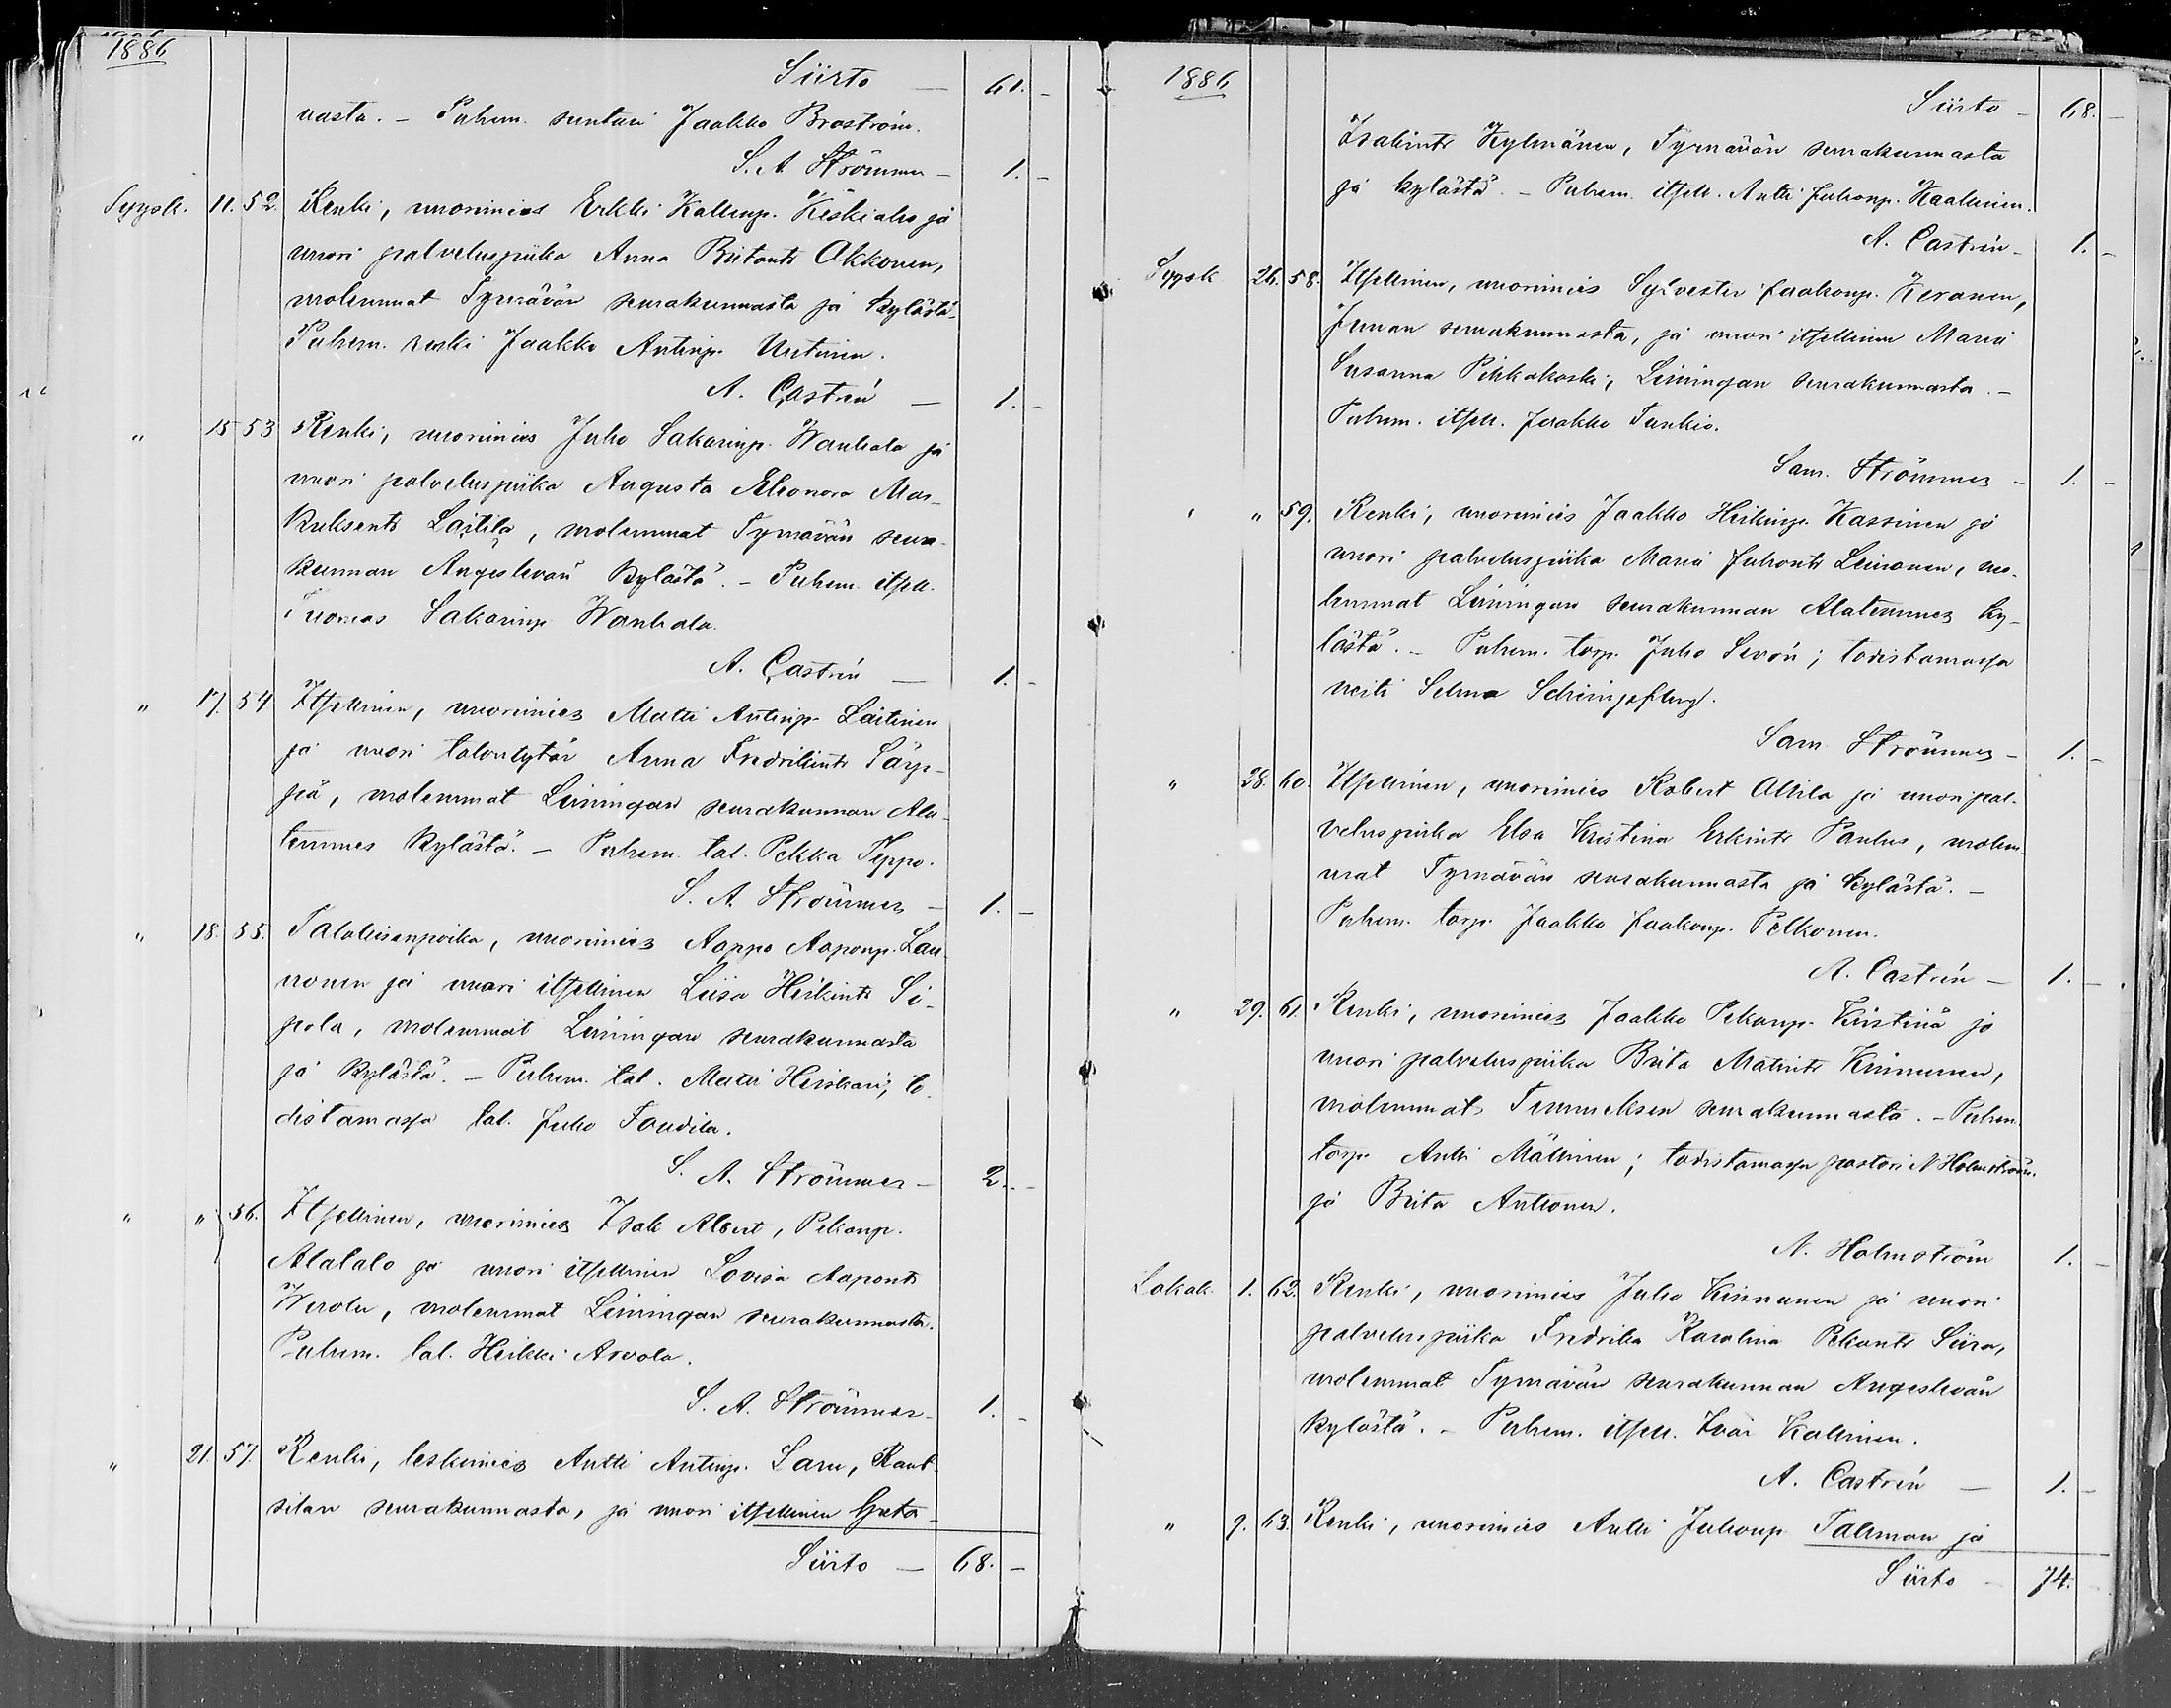 1886
Siirto — 61. -
nasta. - Puhem. suntari Jaakko Broström.
S. A. Strömmer - 1. -
Syysk. 11. 52. Renki, nuorimies Erkki Kallenp. Keskiaho ja
nuori palveluspiika Anna Briitantr Okkonen,
molemmat Tyrnävän seurakunnasta ja kylästä.
Puhem. renki Jaakko Antinp. Uutinen.
A. Castrén — 1. -
" 15 53 Renki, nuorimies Juho Sakarinp. Wanhala ja
nuori palveluspiika Augusta Eleonora Mar-
kuksentr Laitila, molemmat Tyrnävän seura-
kunnan Angeslevän kylästä. - Puhem. itsell.
Tuomas Sakarinp Wanhala.
A. Castrén — 1. -
" 17. 54 Itsellinen, nuorimies Matti Antinp. Laitinen
ja nuori talontytär Anna Fredrikintr Särp-
pä, molemmat Limingan seurakunnan Ala-
temmes kylästä. - Puhem. tal. Pekka Teppo.
S. A. Strömmer - 1. -
" 18. 55. Talollisenpoika, nuorimies Aappo Aaponp. Lau-
nonen ja nuori itsellinen Liisa Heikintr Si-
pola, molemmat Limingan seurakunnasta
ja kylästä. - Puhem. tal. Matti Heiskari; to-
distamassa tal. Juho Foudila.
S. A. Strömmer - 2. -
" " 56. Itsellinen, nuorimies Isak Albert, Pekanp.
Alatalo ja nuori itsellinen Lovisa Aapontr
Werola, molemmat Limingan seurakunnasta.
Puhem. tal. Heikki Arvola.
S. A. Strömmer - 1. -
" 21. 57. Renki, leskimies Antti Antinp. Saru, Rant-
silan seurakunnasta, ja nuori itsellinen Greta
Siirto — 68. -
1886
Siirto - 68. -
Isakintr Kylmänen, Tyrnävän seurakunnasta
ja kylästä. - Puhem. itsell. Antti Juhonp. Kaakinen.
A. Castrén - 1. -
Syysk. 26. 58. Itsellinen, nuorimies Sylvester Jaakonp. Keränen,
seurakunnasta, ja nuori itsellinen Maria
Susanna Pikkakoski, Limingan seurakunnasta. -
Puhem. itsell. Jaakko Tunkio.
Sam. Strömmer - 1. -
" " 59. Renki, nuorimies Jaakko Heikinp. Kassinen ja
nuori palveluspiika Maria Juhontr Leinonen, mo-
lemmat Limingan seurakunnan Alatemmes ky-
lästä. - Puhem. torp. Juho Sevón; todistamassa
neiti Selma
Sam. Strömmer - 1. -
" 28. 60. Itsellinen, nuorimies Robert Ollila ja nuori pal-
veluspiika Elsa Kristina Erkintr Paulus, molem-
mat Tyrnävän seurakunnasta ja kylästä. -
Puhem. torp. Jaakko Jaakonp. Pelkonen.
A. Castrén - 1. -
" 29. 61. Renki, nuorimies Jaakko Pekanp. Kiristinä ja
nuori palveluspiika Brita Matintr Kinnunen,
molemmat Temmeksen seurakunnasta. - Puhem.
torp. Antti Mällinen; todistamassa pastori N Holmström.
ja Brita Anttonen.
N. Holmström 1. -
Lokak. 1. 62. Renki, nuorimies Juho Kinnunen ja nuori
palveluspiika Fredrika Karolina Pekantr Siira,
molemmat Tyrnävän seurakunnan Angeslevän
kylästä. - Puhem. itsell. Ivar Kallinen.
A. Castrén — 1. -
" 9. 63. Renki, nuorimies Antti Juhonp Tahman ja
Siirto - 74. -